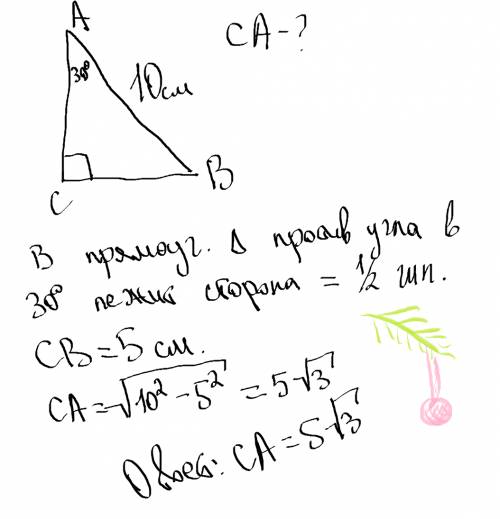 A
CA-?
30°
10см
C
B
В прямоуг. Δ против угла в
30° лежит сторона = 1/2 гип.
CB=5 см.
CA=√10²-5² = 5√3
Ответ: CA=5√3